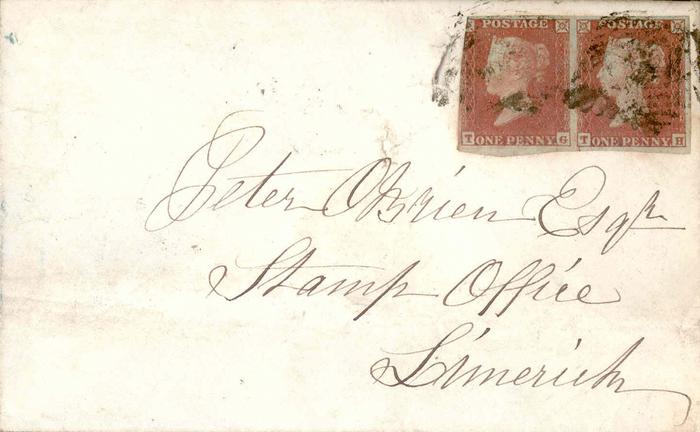 POSTAGE POSTAGE
T ONE PENNY G T ONE PENNY H
Peter OBrien Esqr
Stamp Office
Limerick